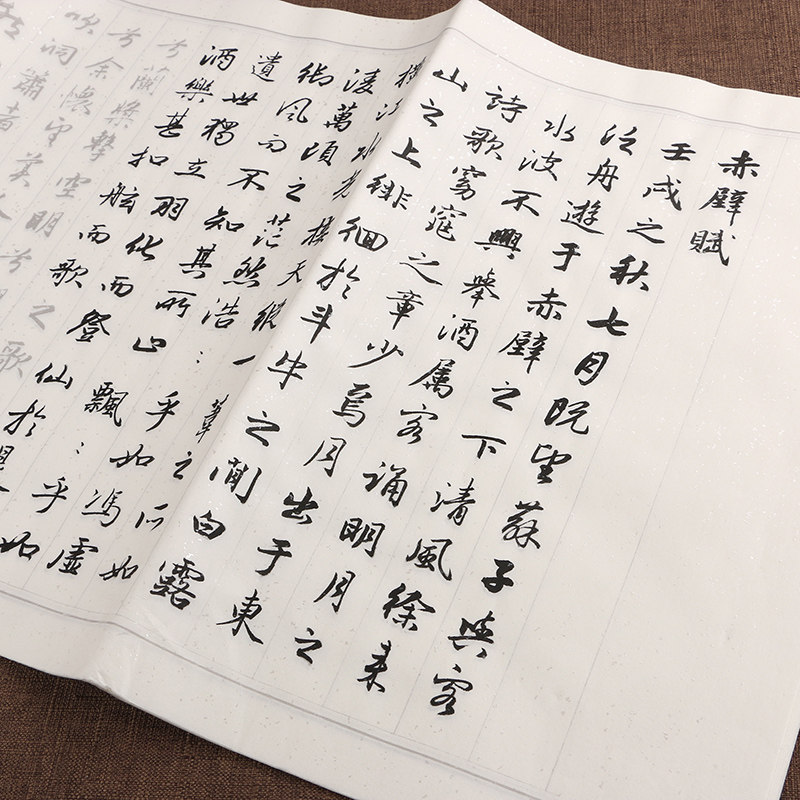 赤壁賦
壬戌之秋七月既望蘇子與客
泛舟遊于赤壁之下清風徐來
水波不興舉酒属客誦明月之
詩歌窈窕之章少焉月出于東
山之上徘徊於斗牛之間白露
橫江水光接天縱一葦之所如
凌萬頃之茫然浩:乎如馮虛
御風而不知其所止飄:乎如
遺世獨立羽化而登仙於
酒樂甚扣舷而歌
兮蘭槳擊空明兮
兮余懷望美人
吹洞簫者